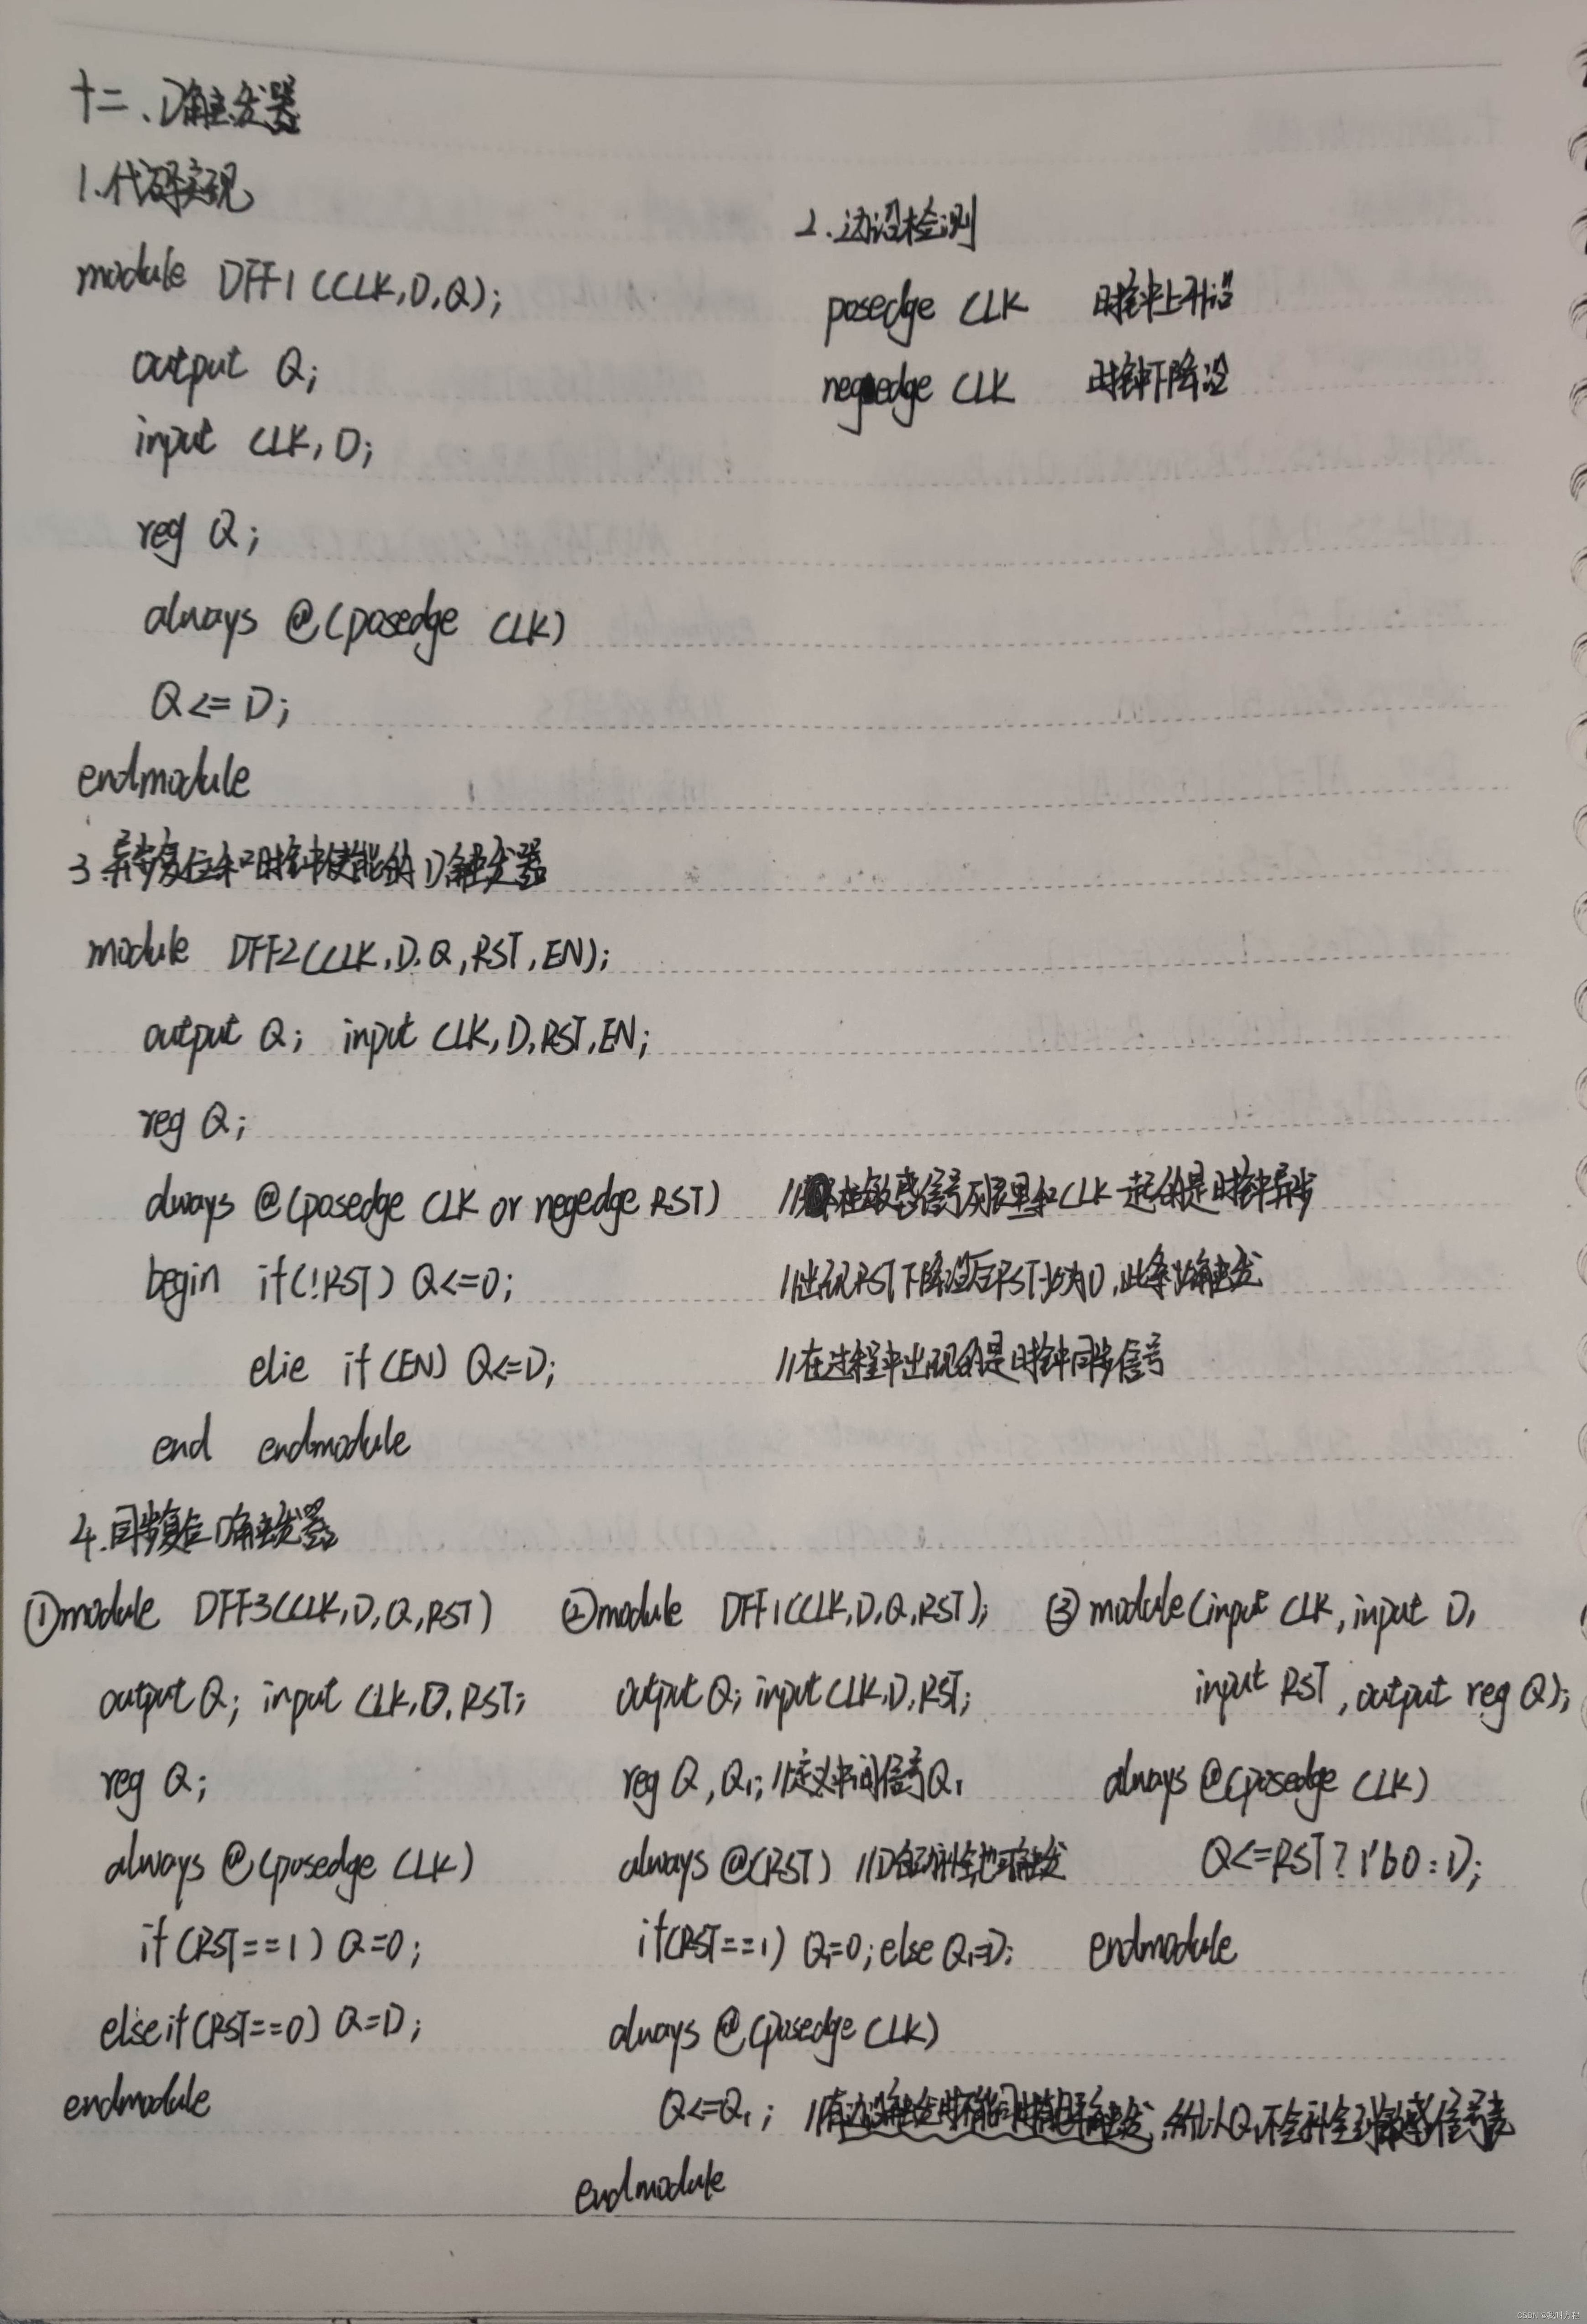 十二、D触发器
1.代码实现
module DFF1(CLK,D,Q);
output Q;
input CLK,D;
reg Q;
always @(posedge CLK)
Q<=D;
endmodule
2.边沿检测
posedge CLK 时钟上升沿
negedge CLK 时钟下降沿
3.异步复位和时钟使能的D触发器
module DFF2(CLK,D,Q,RST,EN);
output Q; input CLK,D,RST,EN;
reg Q;
always @(posedge CLK or negedge RST) //在敏感信号列表里和CLK一起的是时钟异步
begin if(!RST) Q<=0; //出现RST下降沿后RST必为0,此条必触发
else if(EN) Q<=D; //在过程中出现的是时钟同步信号
end endmodule
4.同步复位D触发器
①module DFF3(CLK,D,Q,RST)
output Q; input CLK,D,RST;
reg Q;
always @(posedge CLK)
if(RST==1) Q=0;
else if(RST==0) Q=D;
endmodule
②module DFF1(CLK,D,Q,RST);
output Q; input CLK,D,RST;
reg Q,Q1; //定义中间信号Q1
always @(RST) //D自动补全也可触发
if(RST==1) Q1=0; else Q1=D;
always @(posedge CLK)
Q<=Q1; //有边沿触发时不能同时有电平触发,所以Q1不会补全到敏感信号表
endmodule
③module(input CLK,input D,
input RST,output reg Q);
always @(posedge CLK)
Q<=RST?1'b0:D;
endmodule
CSDN @我叫方程